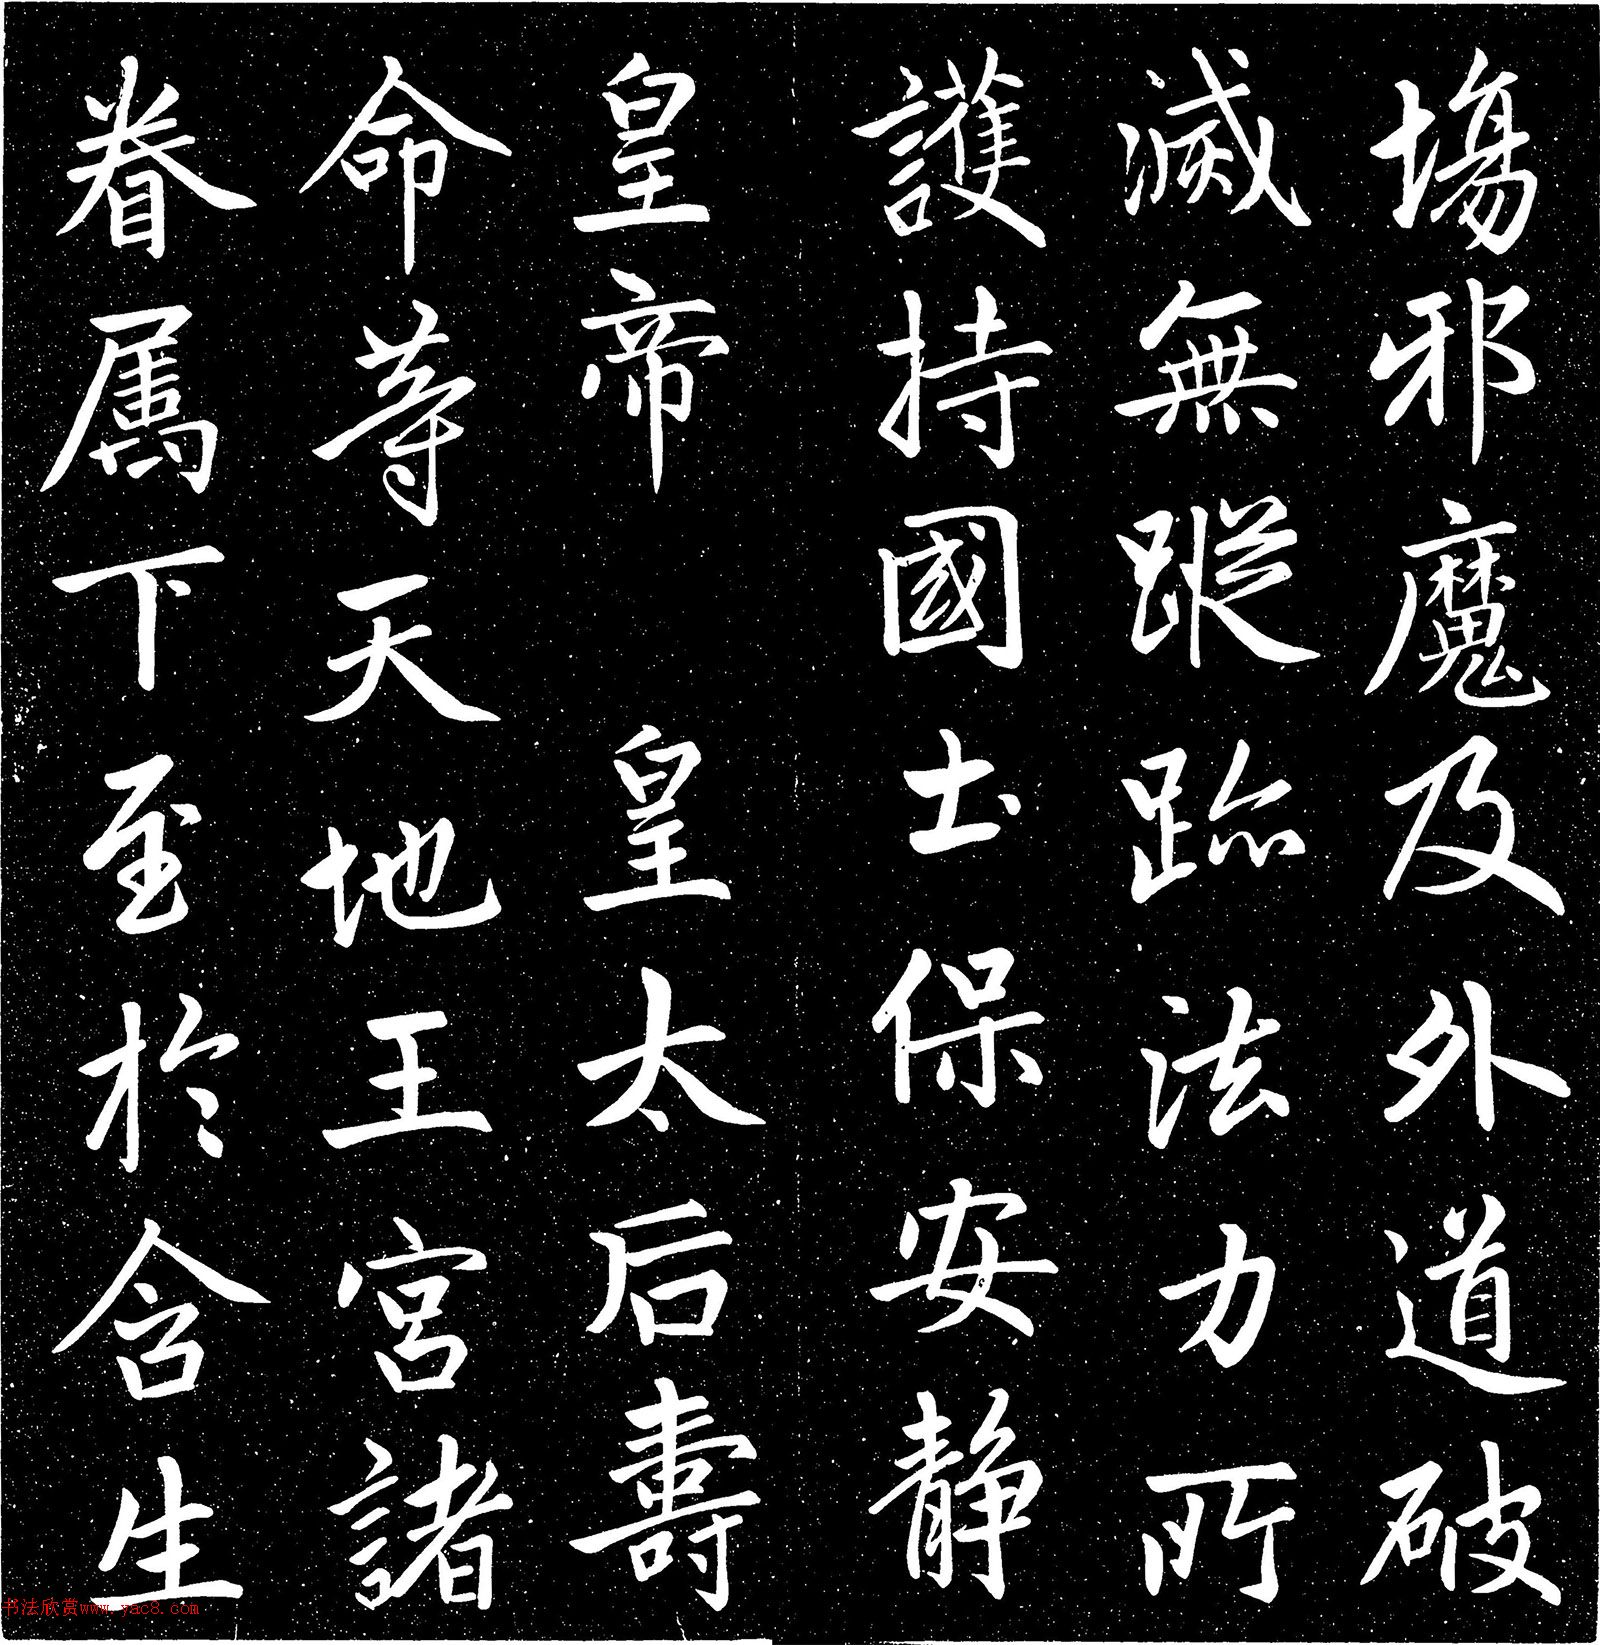 場邪魔及外道破
滅無蹤跡法力所
護持國土保安静
皇帝 皇太后壽
命等天地王宮諸
眷属下至於含生
书法欣赏www.yac8.com